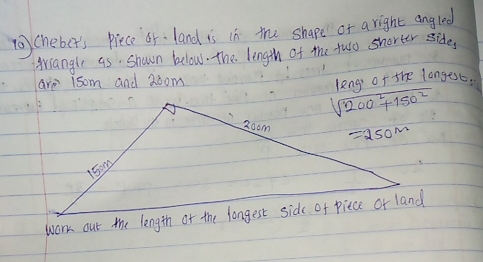 10) Cheber's piece of land is in the shape of a right angled
triangle as shown below. The length of the two shorter sides
are 150m and 200m
leng of the longest:
√200²+150²
=250m
200m
150m
Work out the length of the longest side of piece of land